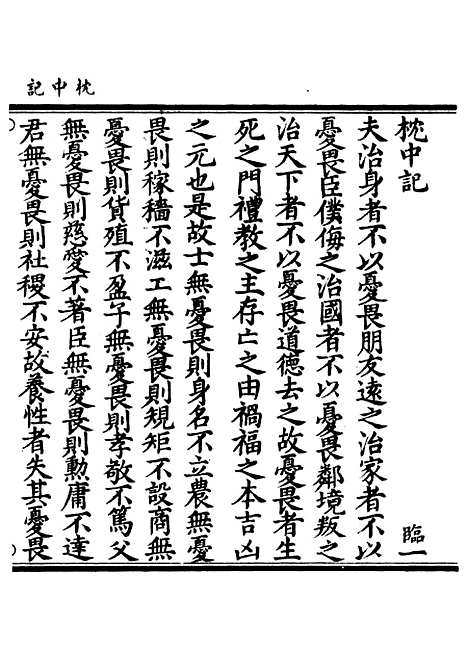 枕中記
枕中記 臨一
夫治身者不以憂畏朋友遠之治家者不以
憂畏臣僕侮之治國者不以憂畏鄰境叛之
治天下者不以憂畏道德去之故憂畏者生
死之門禮教之主存亡之由禍福之本吉凶
之元也是故士無憂畏則身名不立農無憂
畏則稼穡不滋工無憂畏則規矩不設商無
憂畏則貨殖不盈子無憂畏則孝敬不篤父
無憂畏則慈愛不著臣無憂畏則勲庸不達
君無憂畏則社稷不安故養性者失其憂畏